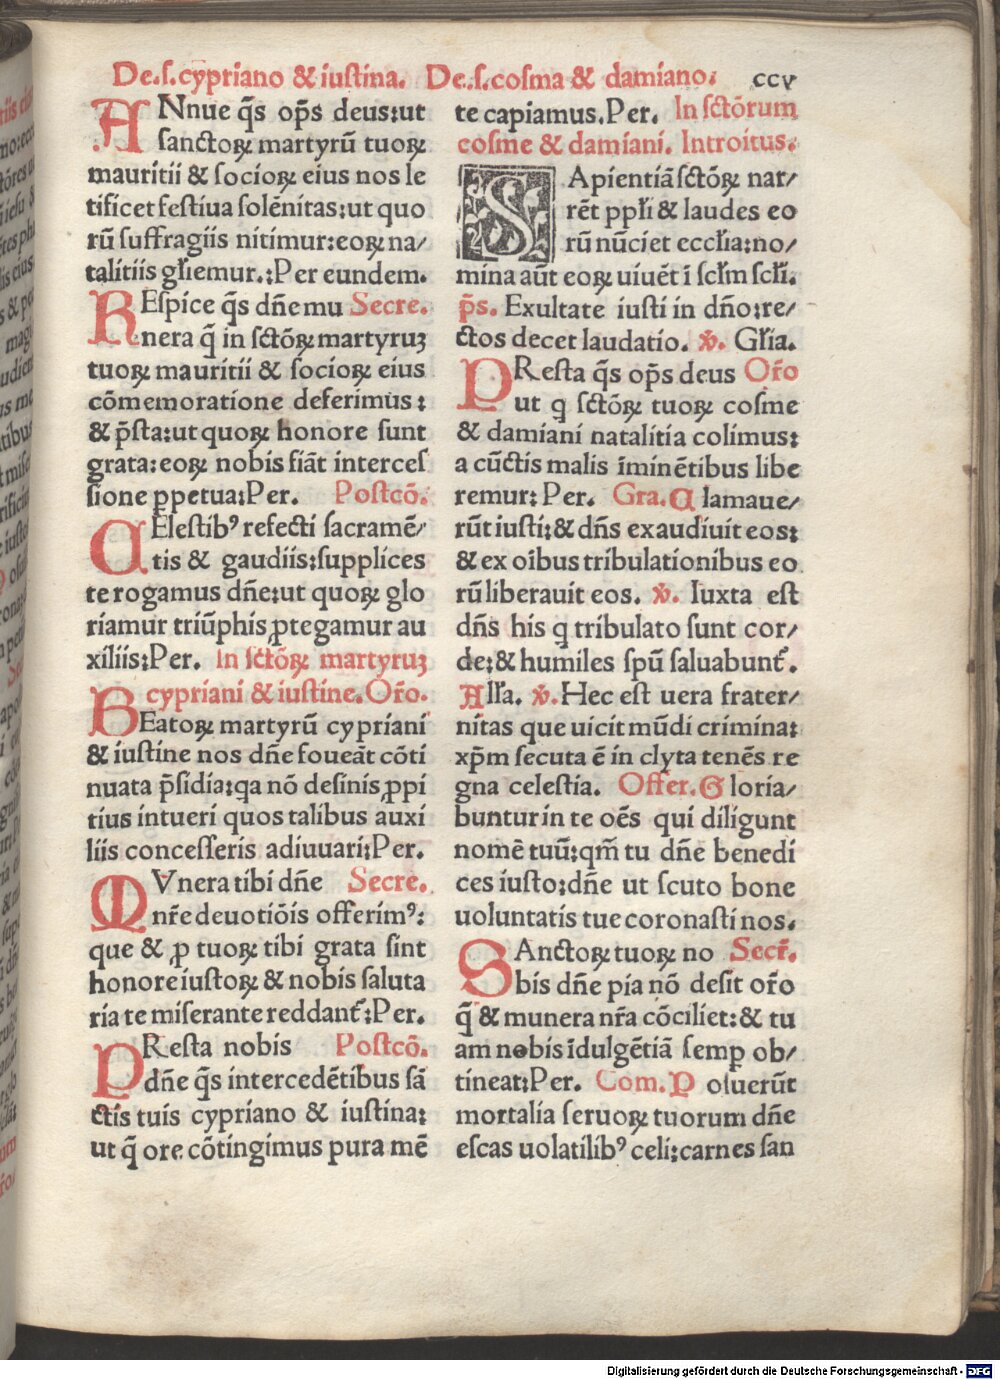 De.ſ.cypriano & iuſtina. De.ſ.coſma & damiano. ccv
ANnue q̄s op̄s deus:ut
ſanctoꝝ martyrū tuoꝝ
mauritii & ſocioꝝ eius nos le
tificet feſtiua ſolēnitas:ut quo
rū ſuffragiis nitimur:eoꝝ na/
talitiis gl̄iemur.:Per eundem.
REſpice q̄s dn̄e mu Secre.
nera q̄ in ſctōꝝ martyruꝫ
tuoꝝ mauritii & ſocioꝝ eius
cōmemoratione deferimus:
& p̄ſta:ut quoꝝ honore ſunt
grata:eoꝝ nobis fiāt interceſ
ſione ꝑpetua:Per. Poſtcō.
CEleſtibꝰ refecti ſacramē/
tis & gaudiis:ſupplices
te rogamus dn̄e:ut quoꝝ glo
riamur triūphis ꝓtegamur au
xiliis:Per. In ſctōꝝ martyruꝫ
cypriani & iuſtine. Or̄o.
BEatoꝝ martyrū cypriani
& iuſtine nos dn̄e foueāt cōti
nuata p̄ſidia:qa nō deſinis ꝓpi
tius intueri quos talibus auxi
liis conceſſeris adiuuari:Per.
MVnera tibi dn̄e Secre.
nr̄e deuotiōis offerimꝰ:
que & ꝓ tuoꝝ tibi grata ſint
honore iuſtoꝝ & nobis ſaluta
ria te miſerante reddant᷑:Per.
PReſta nobis Poſtcō.
dn̄e q̄s intercedētibus ſā
ctis tuis cypriano & iuſtina:
ut q̄ ore cōtingimus pura mē
te capiamus.Per. In ſctōrum
coſme & damiani. Introitus.
SApientiā ſctōꝝ nar/
rēt ppl̄i & laudes eo
rū nūciet eccl̄ia:no/
mina aūt eoꝝ uiuēt ī ſcl̄m ſcl̄i.
p̄s. Exultate iuſti in dn̄o:re/
ctos decet laudatio. ꝟ. Gl̄ia.
PReſta q̄s op̄s deus Or̄o
ut q ſctōꝝ tuoꝝ coſme
& damiani natalitia colimus:
a cūctis malis īminētibus libe
remur: Per. Gra. Clamaue/
rūt iuſti:& dn̄s exaudiuit eos:
& ex oībus tribulationibus eo
rū liberauit eos. ꝟ. Iuxta eſt
dn̄s his q tribulato ſunt cor/
de:& humiles ſpū ſaluabunt᷑.
All̄a. ꝟ. Hec eſt uera frater/
nitas que uicit mūdi crimina:
xp̄m ſecuta ē in clyta tenēs re
gna celeſtia. Offer. Gloria/
buntur in te oēs qui diligunt
nomē tuū:qm̄ tu dn̄e benedi
ces iuſto:dn̄e ut ſcuto bone
uoluntatis tue coronaſti nos.
SAnctoꝝ tuoꝝ no Secr̄.
bis dn̄e pia nō deſit or̄o
q̄ & munera nr̄a cōciliet:& tu
am nobis īdulgētiā ſemꝑ ob/
tineat:Per. Com. Poſuerūt
mortalia ſeruoꝝ tuorum dn̄e
eſcas uolatilibꝰ celi:carnes ſan
Digitalisierung gefördert durch die Deutsche Forschungsgemeinschaft - DFG